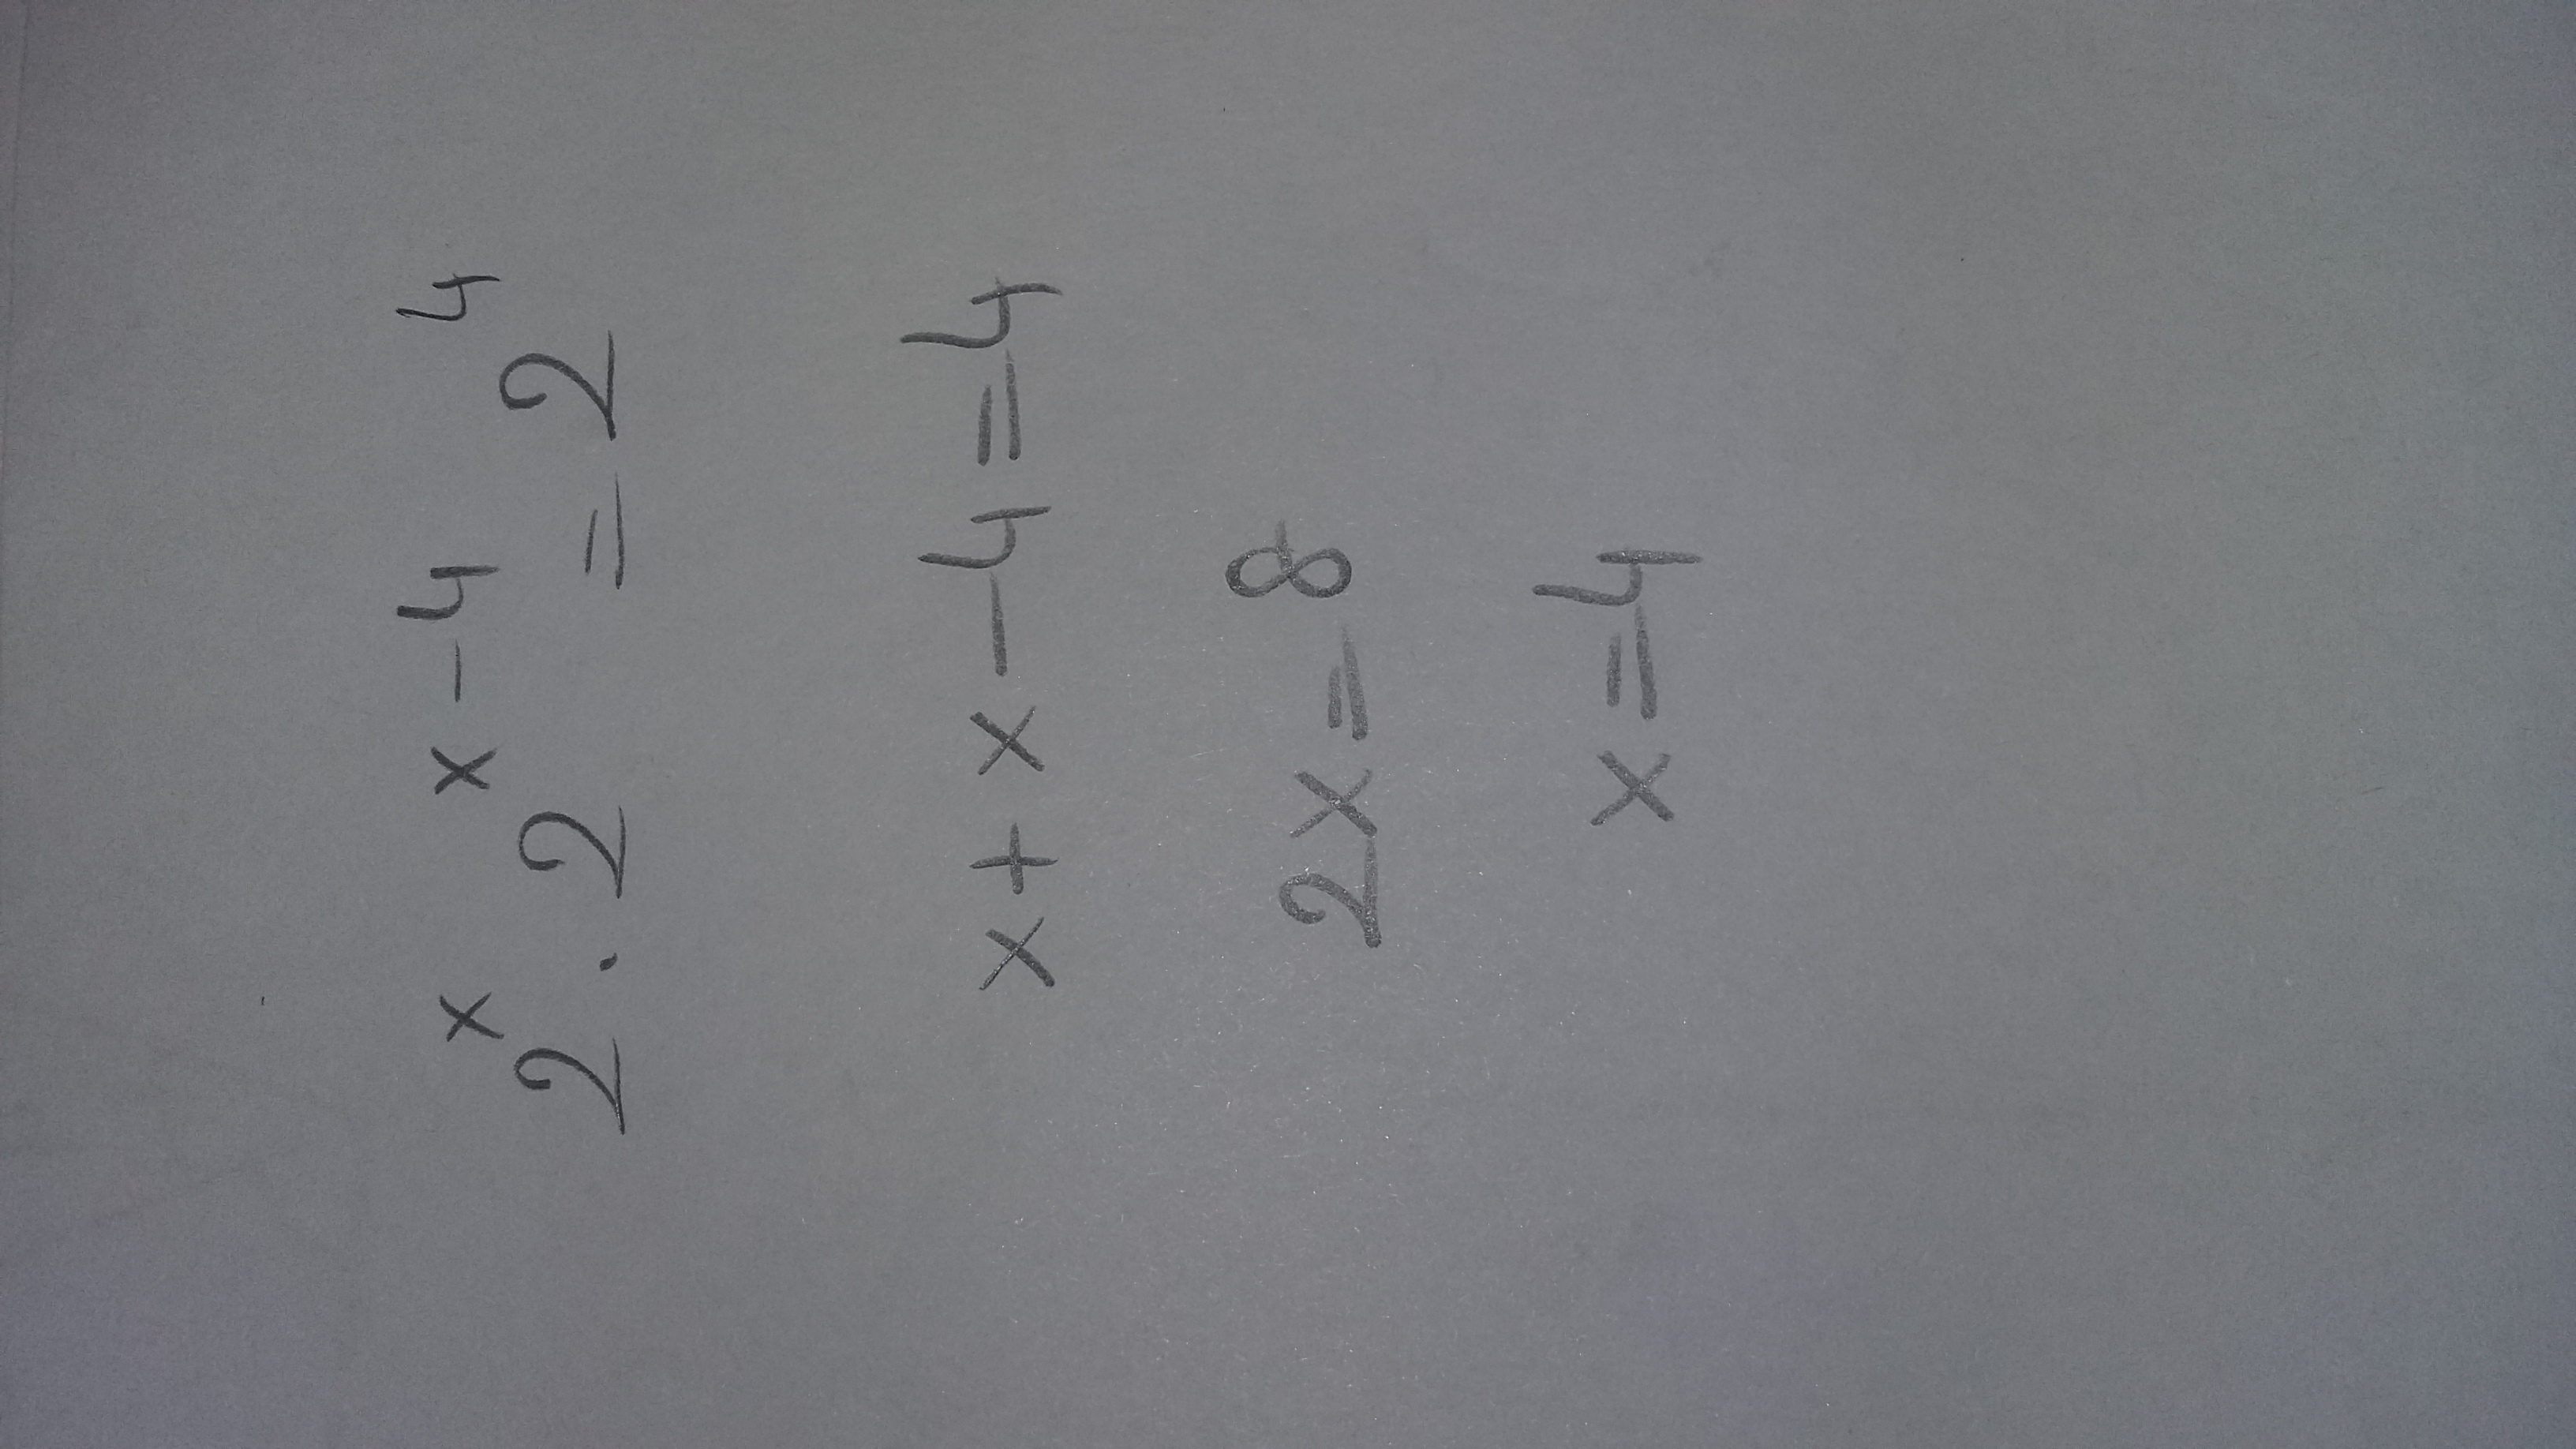 2ˣ · 2ˣ⁻⁴ = 2⁴
x + x - 4 = 4
2x = 8
x = 4